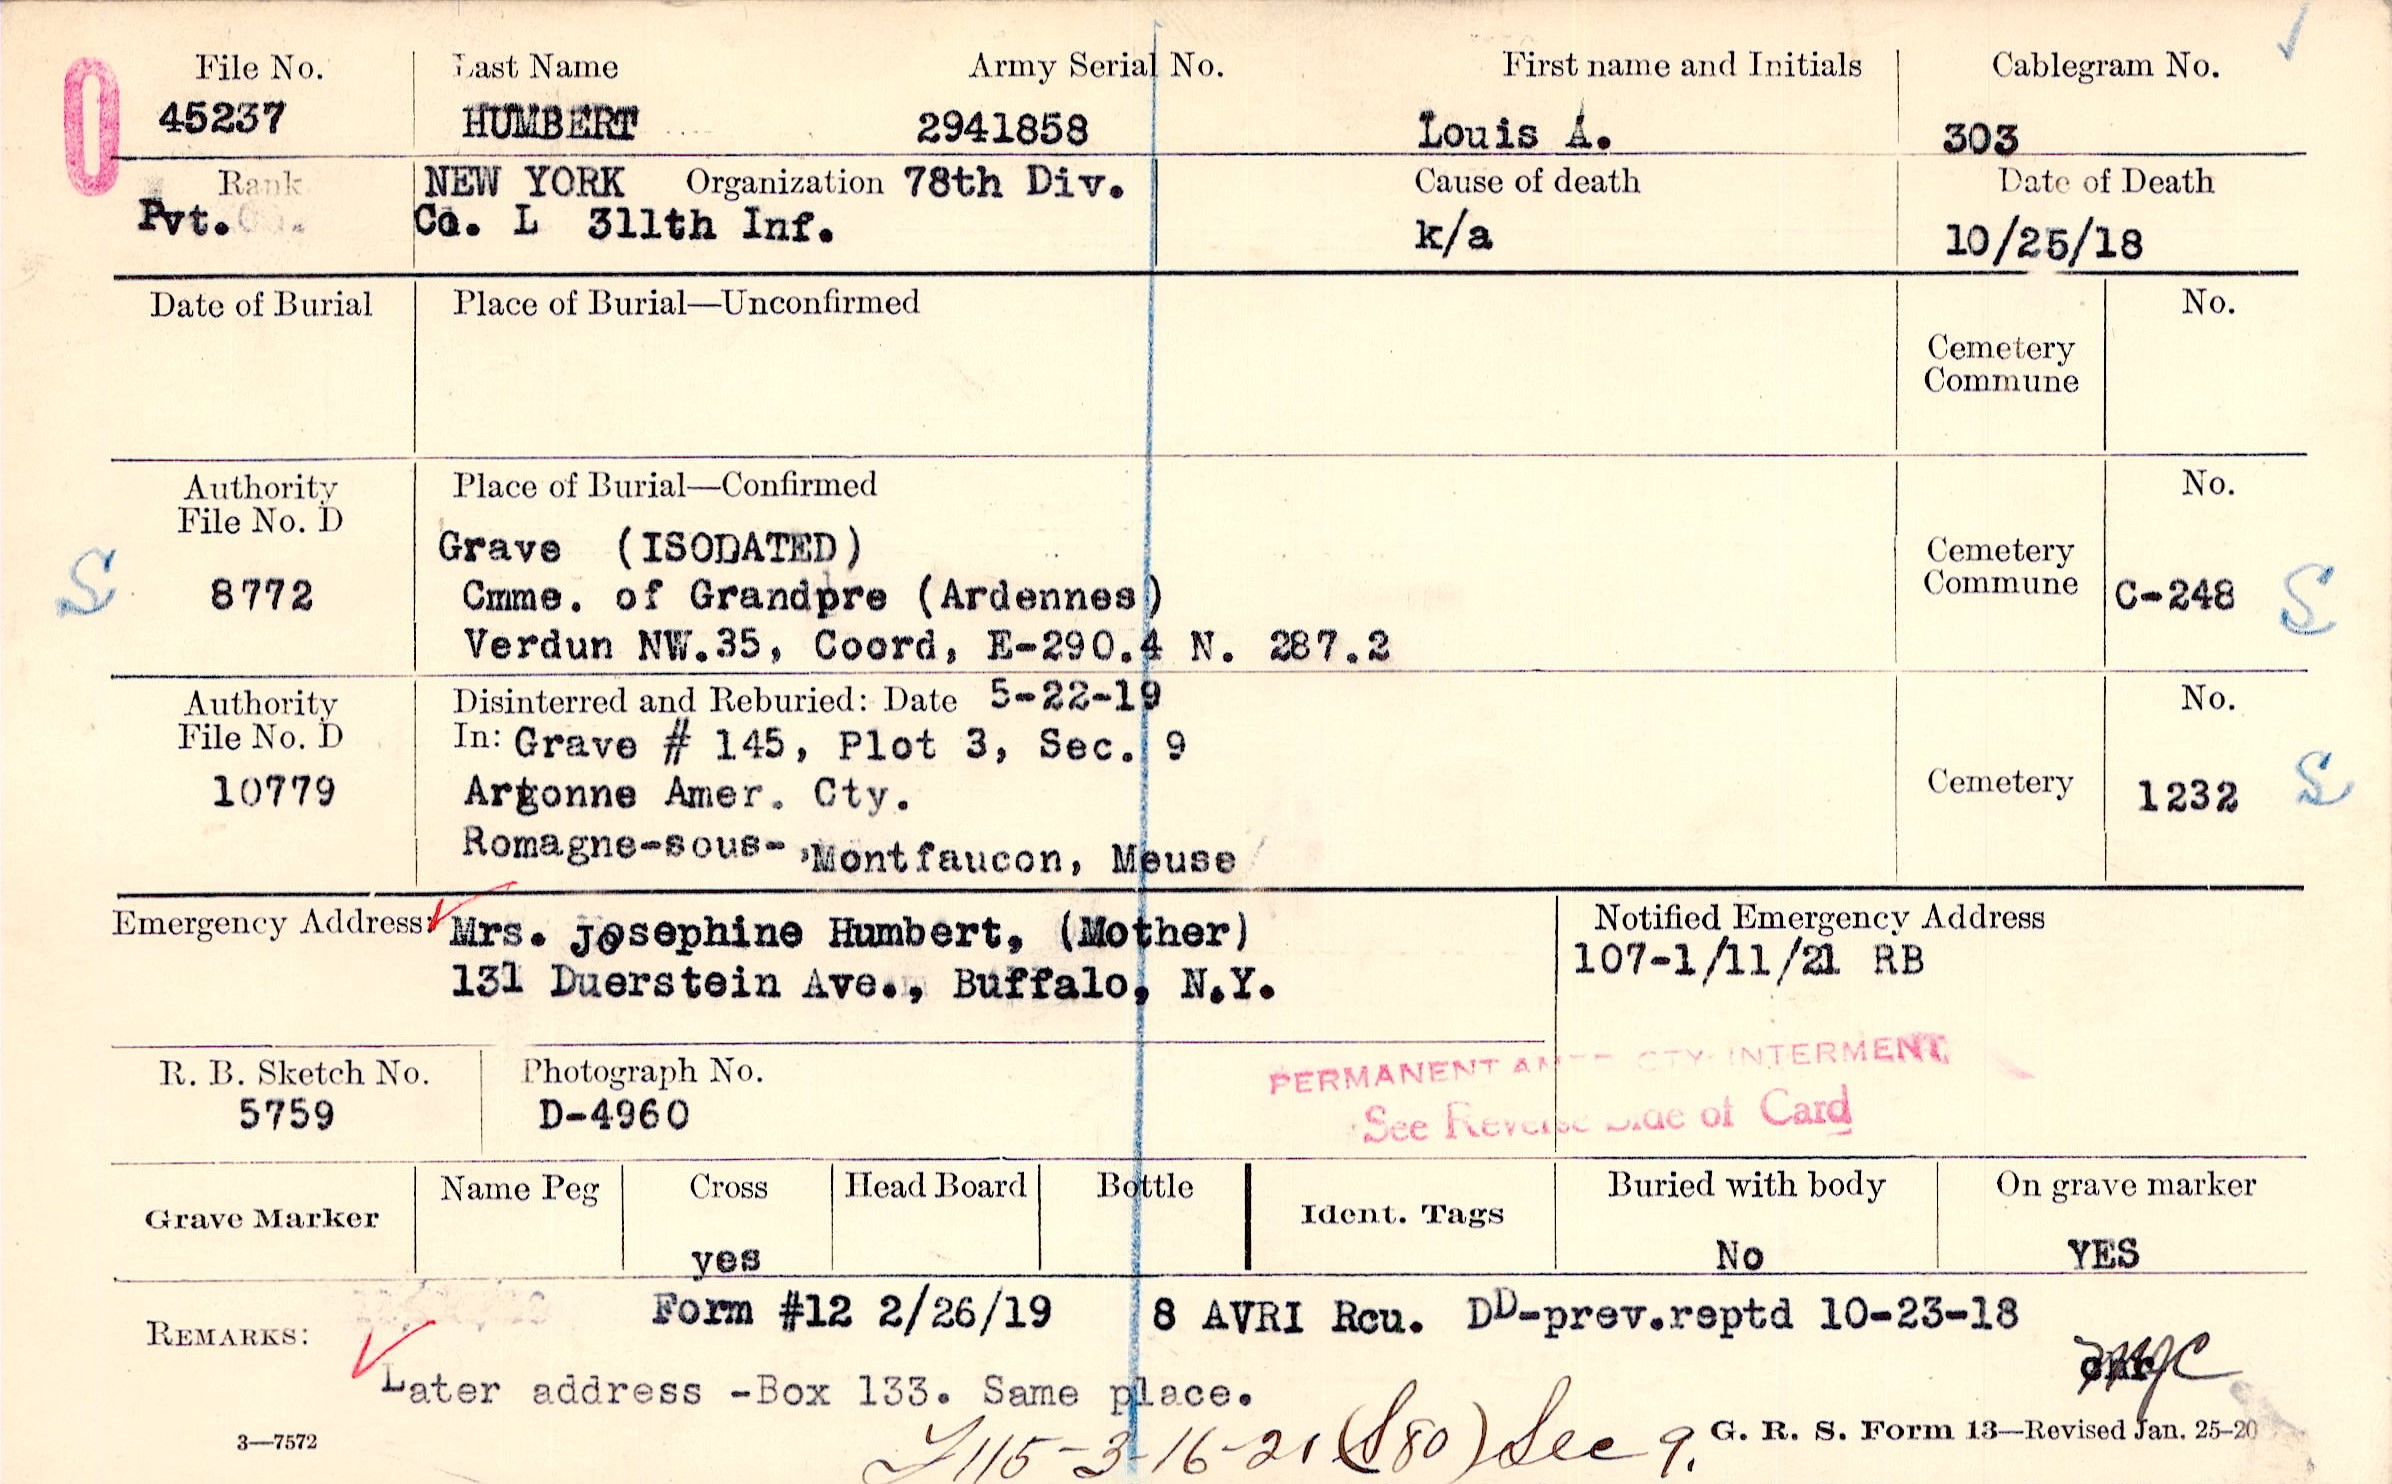 File No. Last Name Army Serial No. First name and Initials Cablegram No.
45237 HUMBERT 2941858 Louis A. 303
Rank NEW YORK Organization 78th Div. Cause of death Date of Death
Pvt. Co. L 311th Inf. k/a 10/25/18
Date of Burial Place of Burial—Unconfirmed No.
Cemetery
Commune
Authority Place of Burial—Confirmed No.
File No. D
Grave (ISODATED) Cemetery
8772 Cmme. of Grandpre (Ardennes) Commune C-248
S S
Verdun NW.35, Coord, E-290.4 N. 287.2
Authority Disinterred and Reburied: Date 5-22-19 No.
File No. D In: Grave # 145, Plot 3, Sec. 9
10779 Argonne Amer. Cty. Cemetery 1232 S
Romagne-sous- Montfaucon, Meuse
Emergency Address: Mrs. Josephine Humbert, (Mother) Notified Emergency Address
131 Duerstein Ave., Buffalo, N.Y. 107-1/11/21 RB
R. B. Sketch No. Photograph No. PERMANENT CTY INTERMENT
5759 D-4960 See Reverse Side of Card
Grave Marker Name Peg Cross Head Board Bottle Ident. Tags Buried with body On grave marker
yes No YES
REMARKS: Form #12 2/26/19 8 AVRI Rcu. DD-prev.reptd 10-23-18
Later address -Box 133. Same place.
3—7572 G. R. S. Form 13—Revised Jan. 25-20
115-3-16-21 (S80) Sec 9.